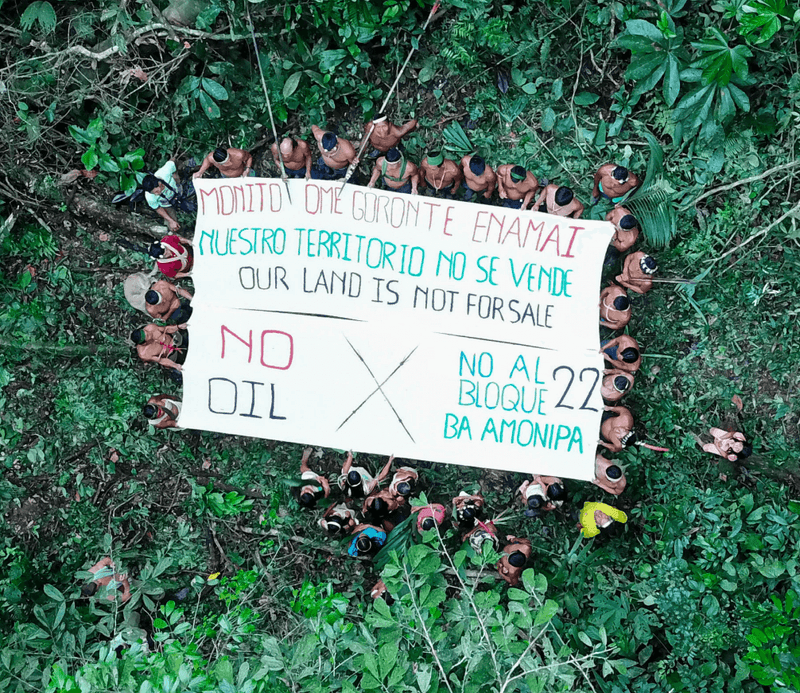 MONITO OME GORONTE ENAMAI
NUESTRO TERRITORIO NO SE VENDE
OUR LAND IS NOT FOR SALE
NO
OIL
NO AL
BLOQUE 22
BA AMONIPA